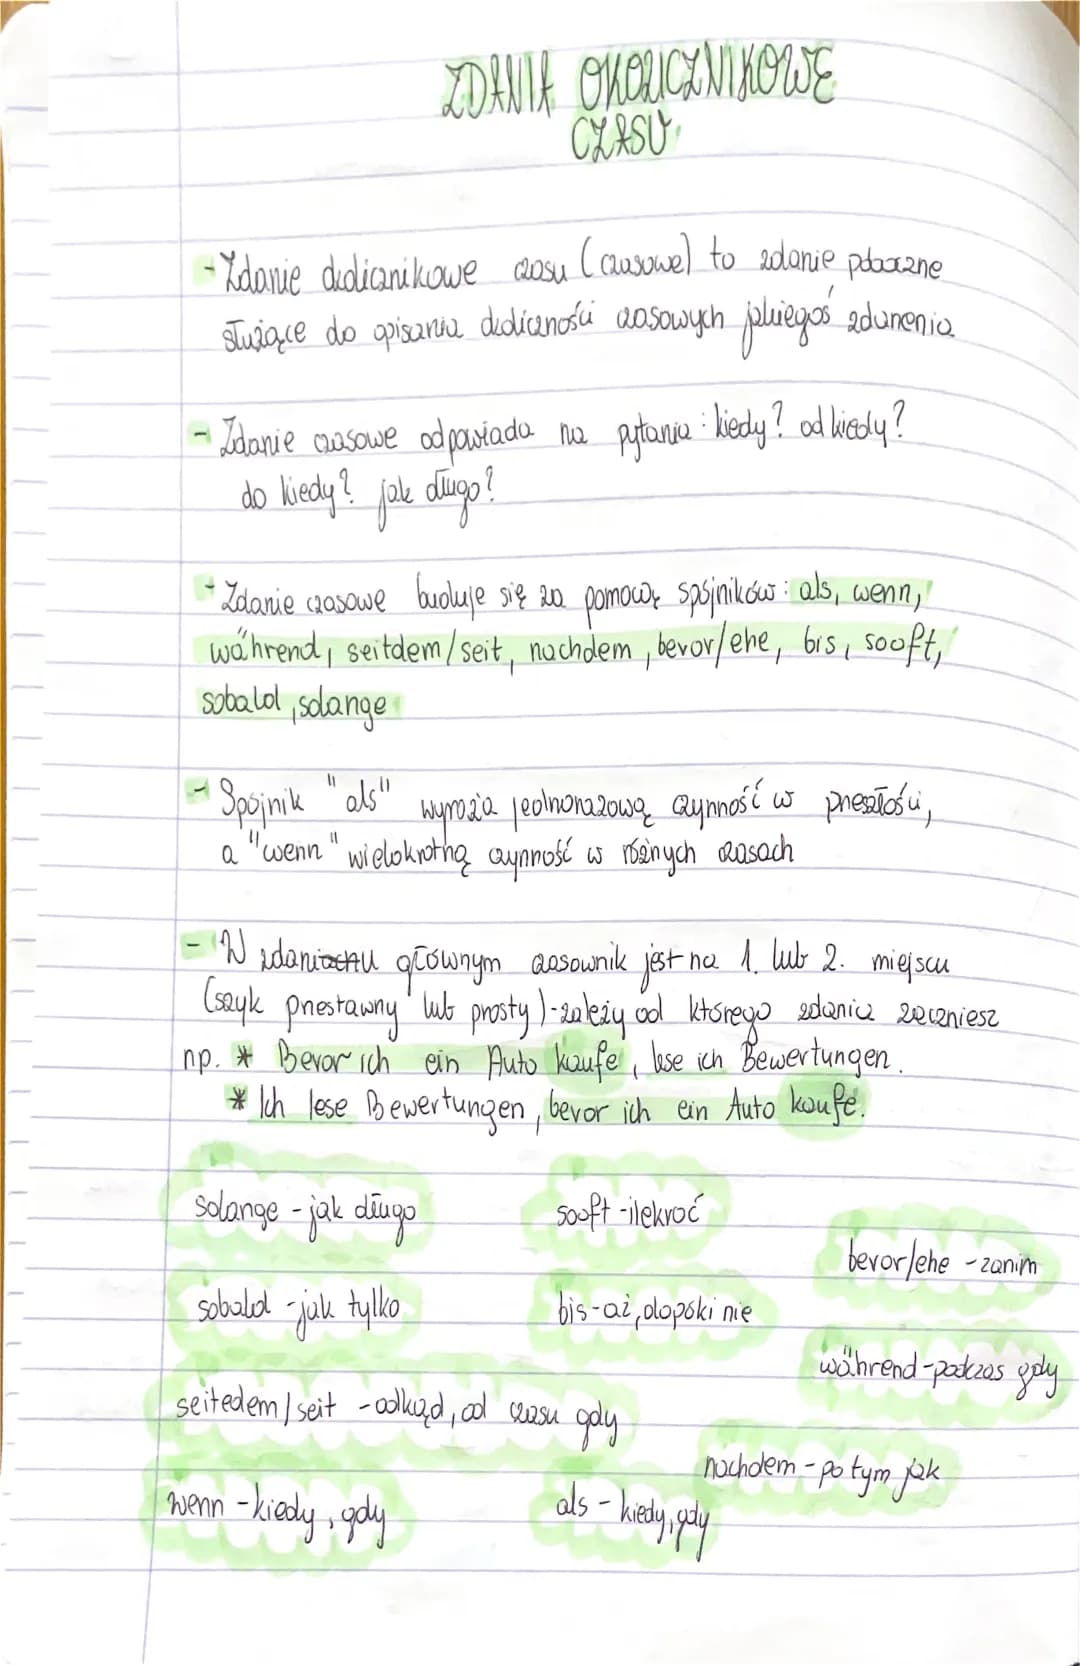 ZDANIA OKOLICZNIKOWE
CZASU
- Zdanie okolicznikowe czasu (czasowe) to zdanie poboczne
służące do opisania okoliczności czasowych jakiegoś zdarzenia
- Zdanie czasowe odpowiada na pytania: kiedy? od kiedy?
do kiedy? jak długo?
- Zdanie czasowe buduje się za pomocą spójników: als, wenn,
während, seitdem/seit, nachdem, bevor/ehe, bis, sooft,
sobald, solange
- Spójnik "als" wyraża jednorazową czynność w przeszłości,
a "wenn" wielokrotną czynność w różnych czasach
- W zdaniu głównym czasownik jest na 1. lub 2. miejscu
(szyk przestawny lub prosty) - zależy od którego zdania zaczniesz
np. * Bevor ich ein Auto kaufe, lese ich Bewertungen.
* Ich lese Bewertungen, bevor ich ein Auto kaufe.
solange - jak długo
sooft - ilekroć
bevor/ehe - zanim
sobald - jak tylko
bis - aż, dopóki nie
während - podczas gdy
seitedem/seit - odkąd, od czasu gdy
nachdem - po tym jak
wenn - kiedy, gdy
als - kiedy, gdy